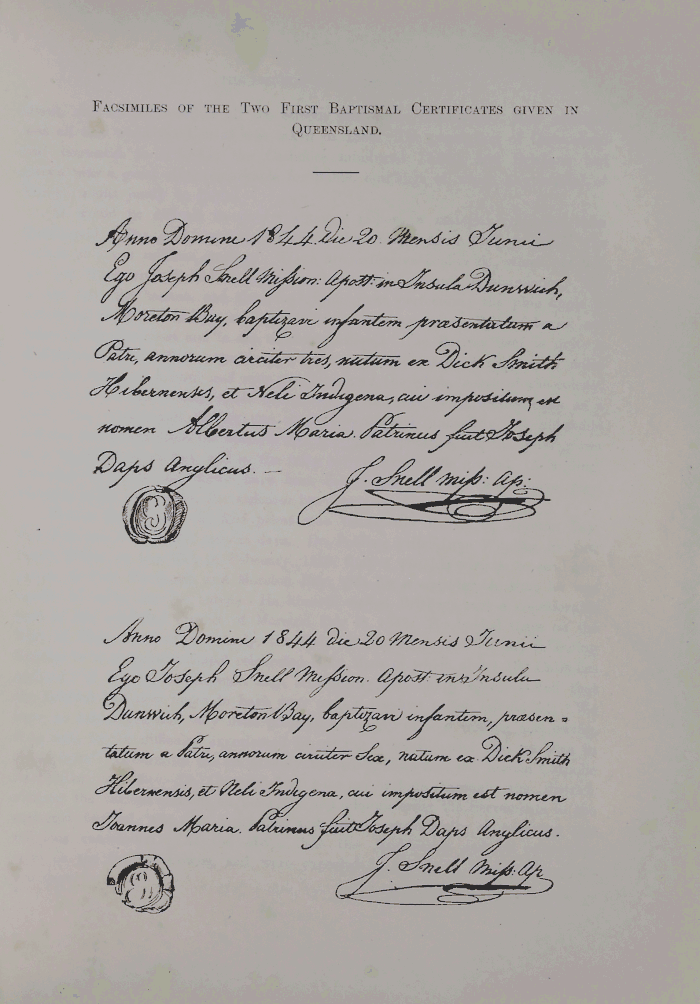 FACSIMILES OF THE TWO FIRST BAPTISMAL CERTIFICATES GIVEN IN
QUEENSLAND.
Anno Domine 1844 die 20 Mensis Junii
Ego Joseph Snell Mission: Apost: in Insula Dunwich,
Moreton Bay, baptizavi infantem præsentatum a
Patri, annorum circiter tres, natum ex Dick Smith
Hibernensis, et Neli Indigena, cui impositum est
nomen Albertus Maria. Patrinus fuit Joseph
Daps Anglicus. —
J. Snell miss: Ap:
Anno Domini 1844 die 20 Mensis Junii
Ego Joseph Snell Mission. Apost. in Insula
Dunwich, Moreton Bay, baptizavi infantem, præsen=
tatum a Patri, annorum circiter Sex, natum ex Dick Smith
Hibernensis, et Neli Indigena, cui impositum est nomen
Joannes Maria. Patrinus fuit Joseph Daps Anglicus.
J. Snell Miss: Ap